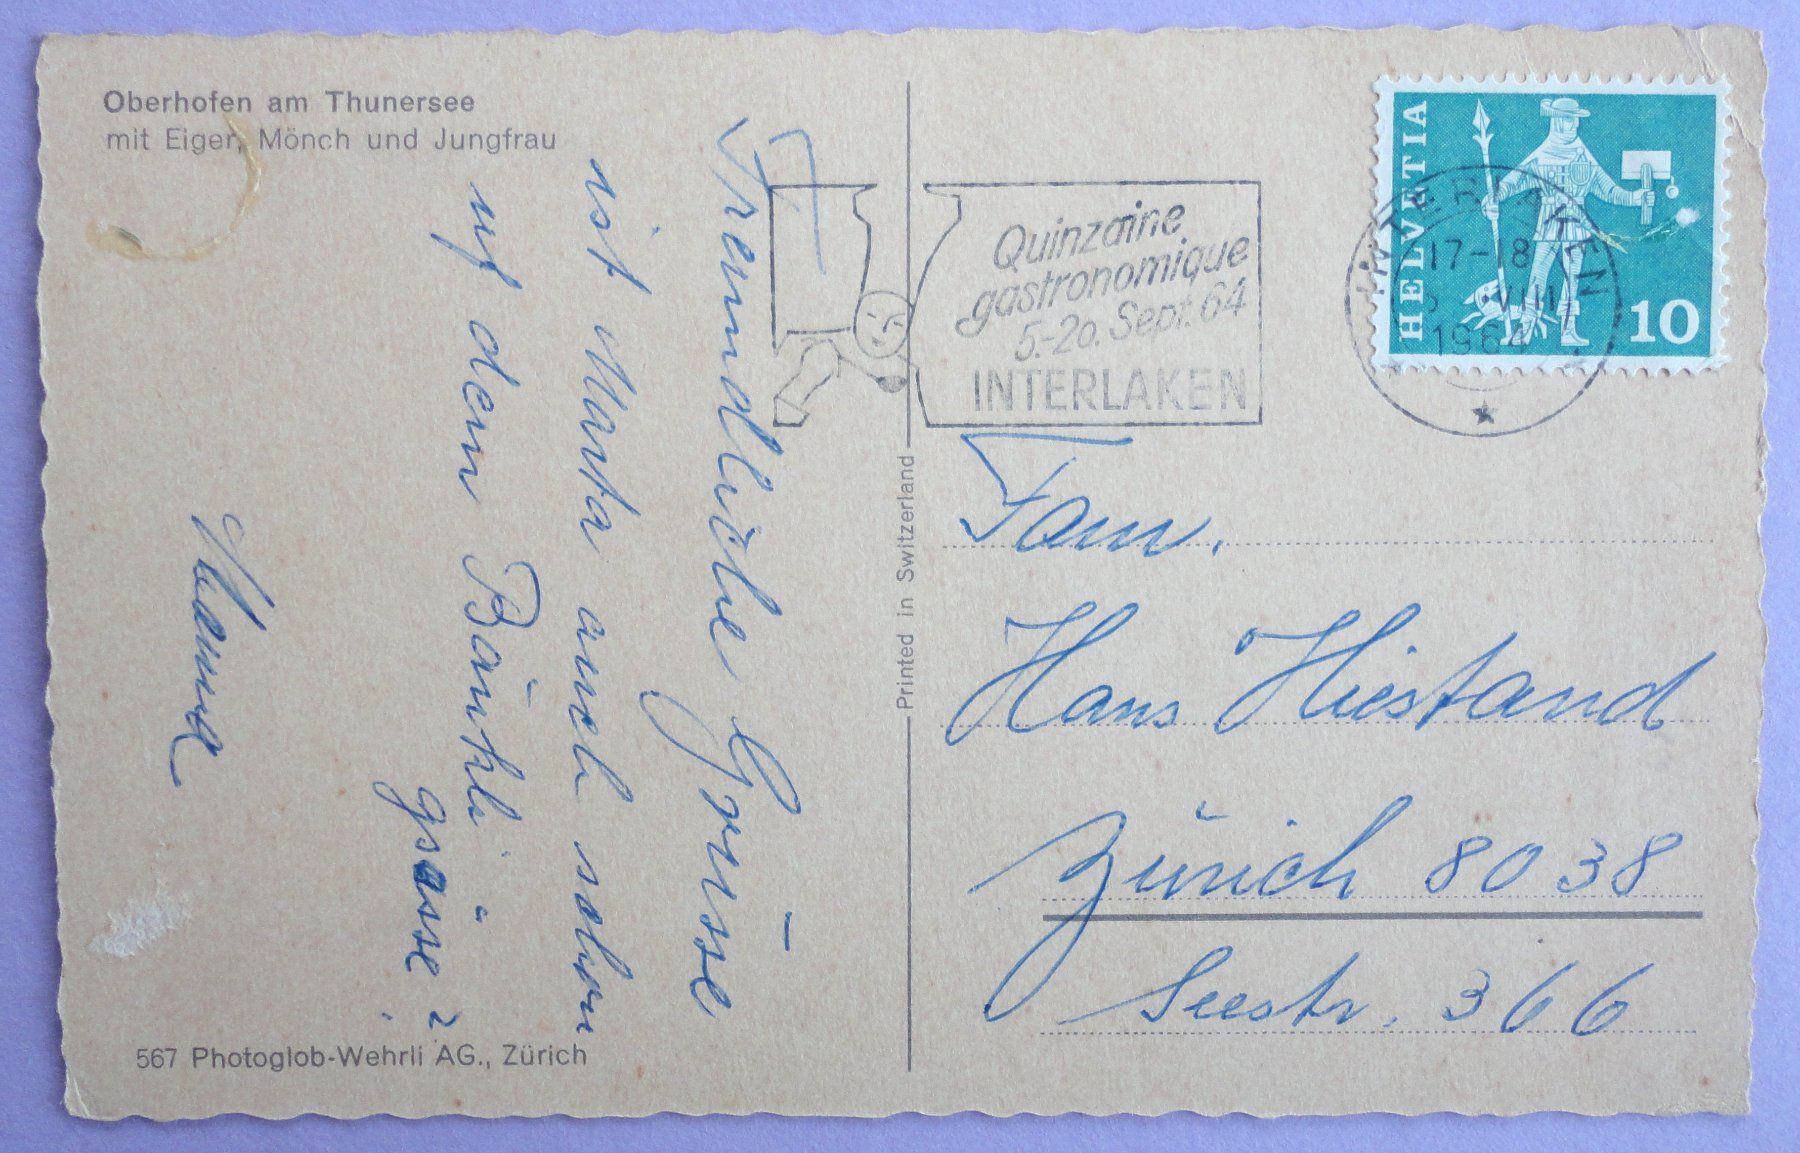 Oberhofen am Thunersee
mit Eiger, Mönch und Jungfrau
Freundliche Grüsse
ist Marta auch schon
uf dem Bänkli
gsässe?
Mama
567 Photoglob-Wehrli AG., Zürich
Printed in Switzerland
Quinzaine
gastronomique
5.-20. Sept. 64
INTERLAKEN
INTERLAKEN
17-18
VIII
1964
HELVETIA
10
Fam.
Hans Hiestand
Zürich 8038
Seestr. 366